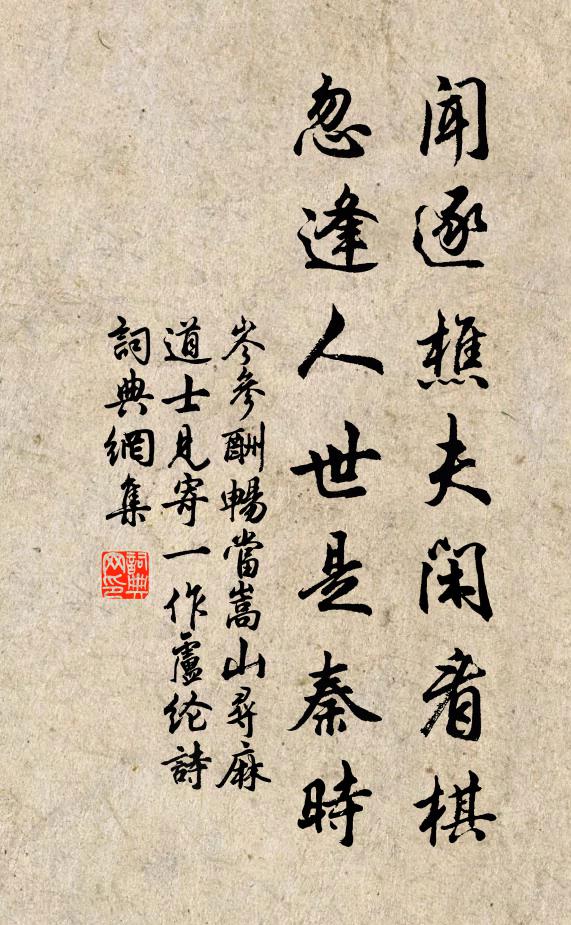 聞逐樵夫閑看棋
忽逢人世是秦時
岑參酬暢當嵩山尋麻
道士見寄一作盧纶詩
詞典網集
詞典网印